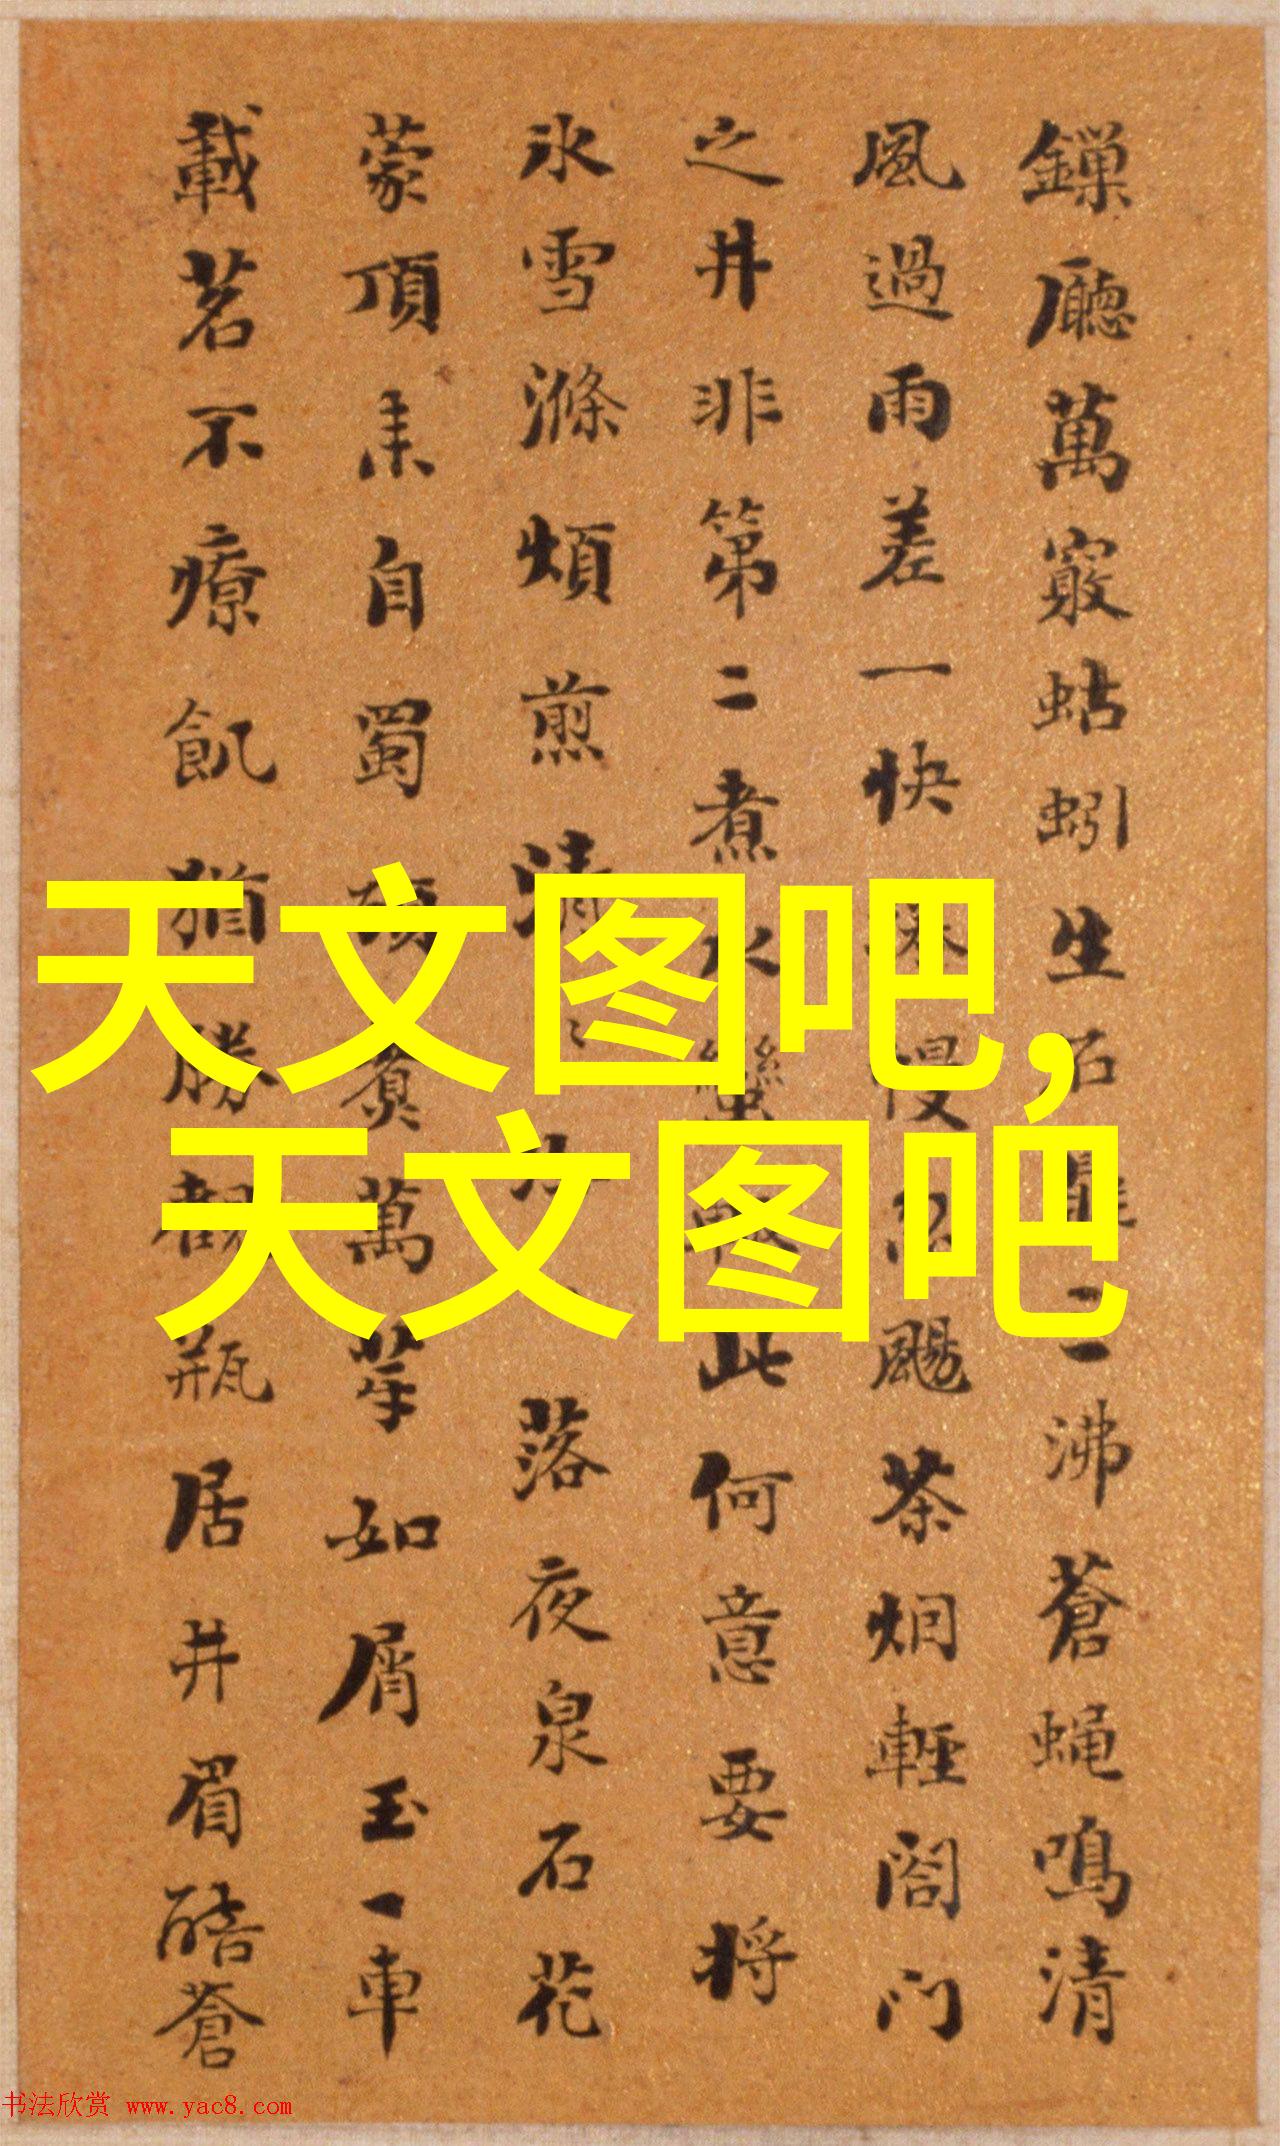 鏁廳萬竅蚯蚓生石二沸蒼蝇鳴清
風過雨差一快慢颺茶烟輕閤門
之井非第二煮水此何意要將
氷雪滌煩煎清落夜泉石花
蒙頂来自蜀萬如屑玉一車
載茗不療飢猶勝觀瓶居井眉酷蒼
天文图吧,
天文图吧
书法欣赏 www.yac8.com